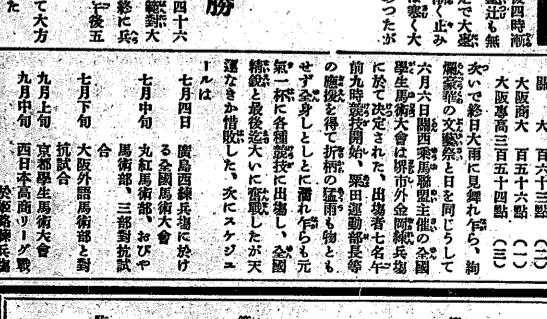 關大 百六十三點 (二)
大阪商大 百五十六點 (一)
大阪專高 三百五十四點 (三)
次いで終日大雨に見舞れ乍ら、絢
爛豪華の文藝祭と日を同じうして
六月六日關西乘馬聯盟主催の全國
學生馬術大會は堺市外金岡練兵場
に於て決定された、出場者七名午
前九時競技開始、栗田運動部長等
の應援を得て折柄の猛雨も物とも
せず全身しとしとに濡れ乍らも元
氣一杯に各種競技に出場し、全國
精銳と最後迄大いに奮戰したが天
運なきか惜敗した。次にスケジュ
ールは
七月四日 廣島西練兵場に於け
る全國馬術大會
七月中旬 丸紅馬術部、おびや
馬術部、三部對抗試
合
七月下旬 大阪外語馬術部と對
抗試合
九月上旬 京都學生馬術大會
九月中旬 西日本高商リーグ戰
於姬路練兵場
勝
四十六
範對大
終に兵
午後五
て大方
た
後四時漸
並迄も無
定で大盛
く止み
は寒く大
つたが